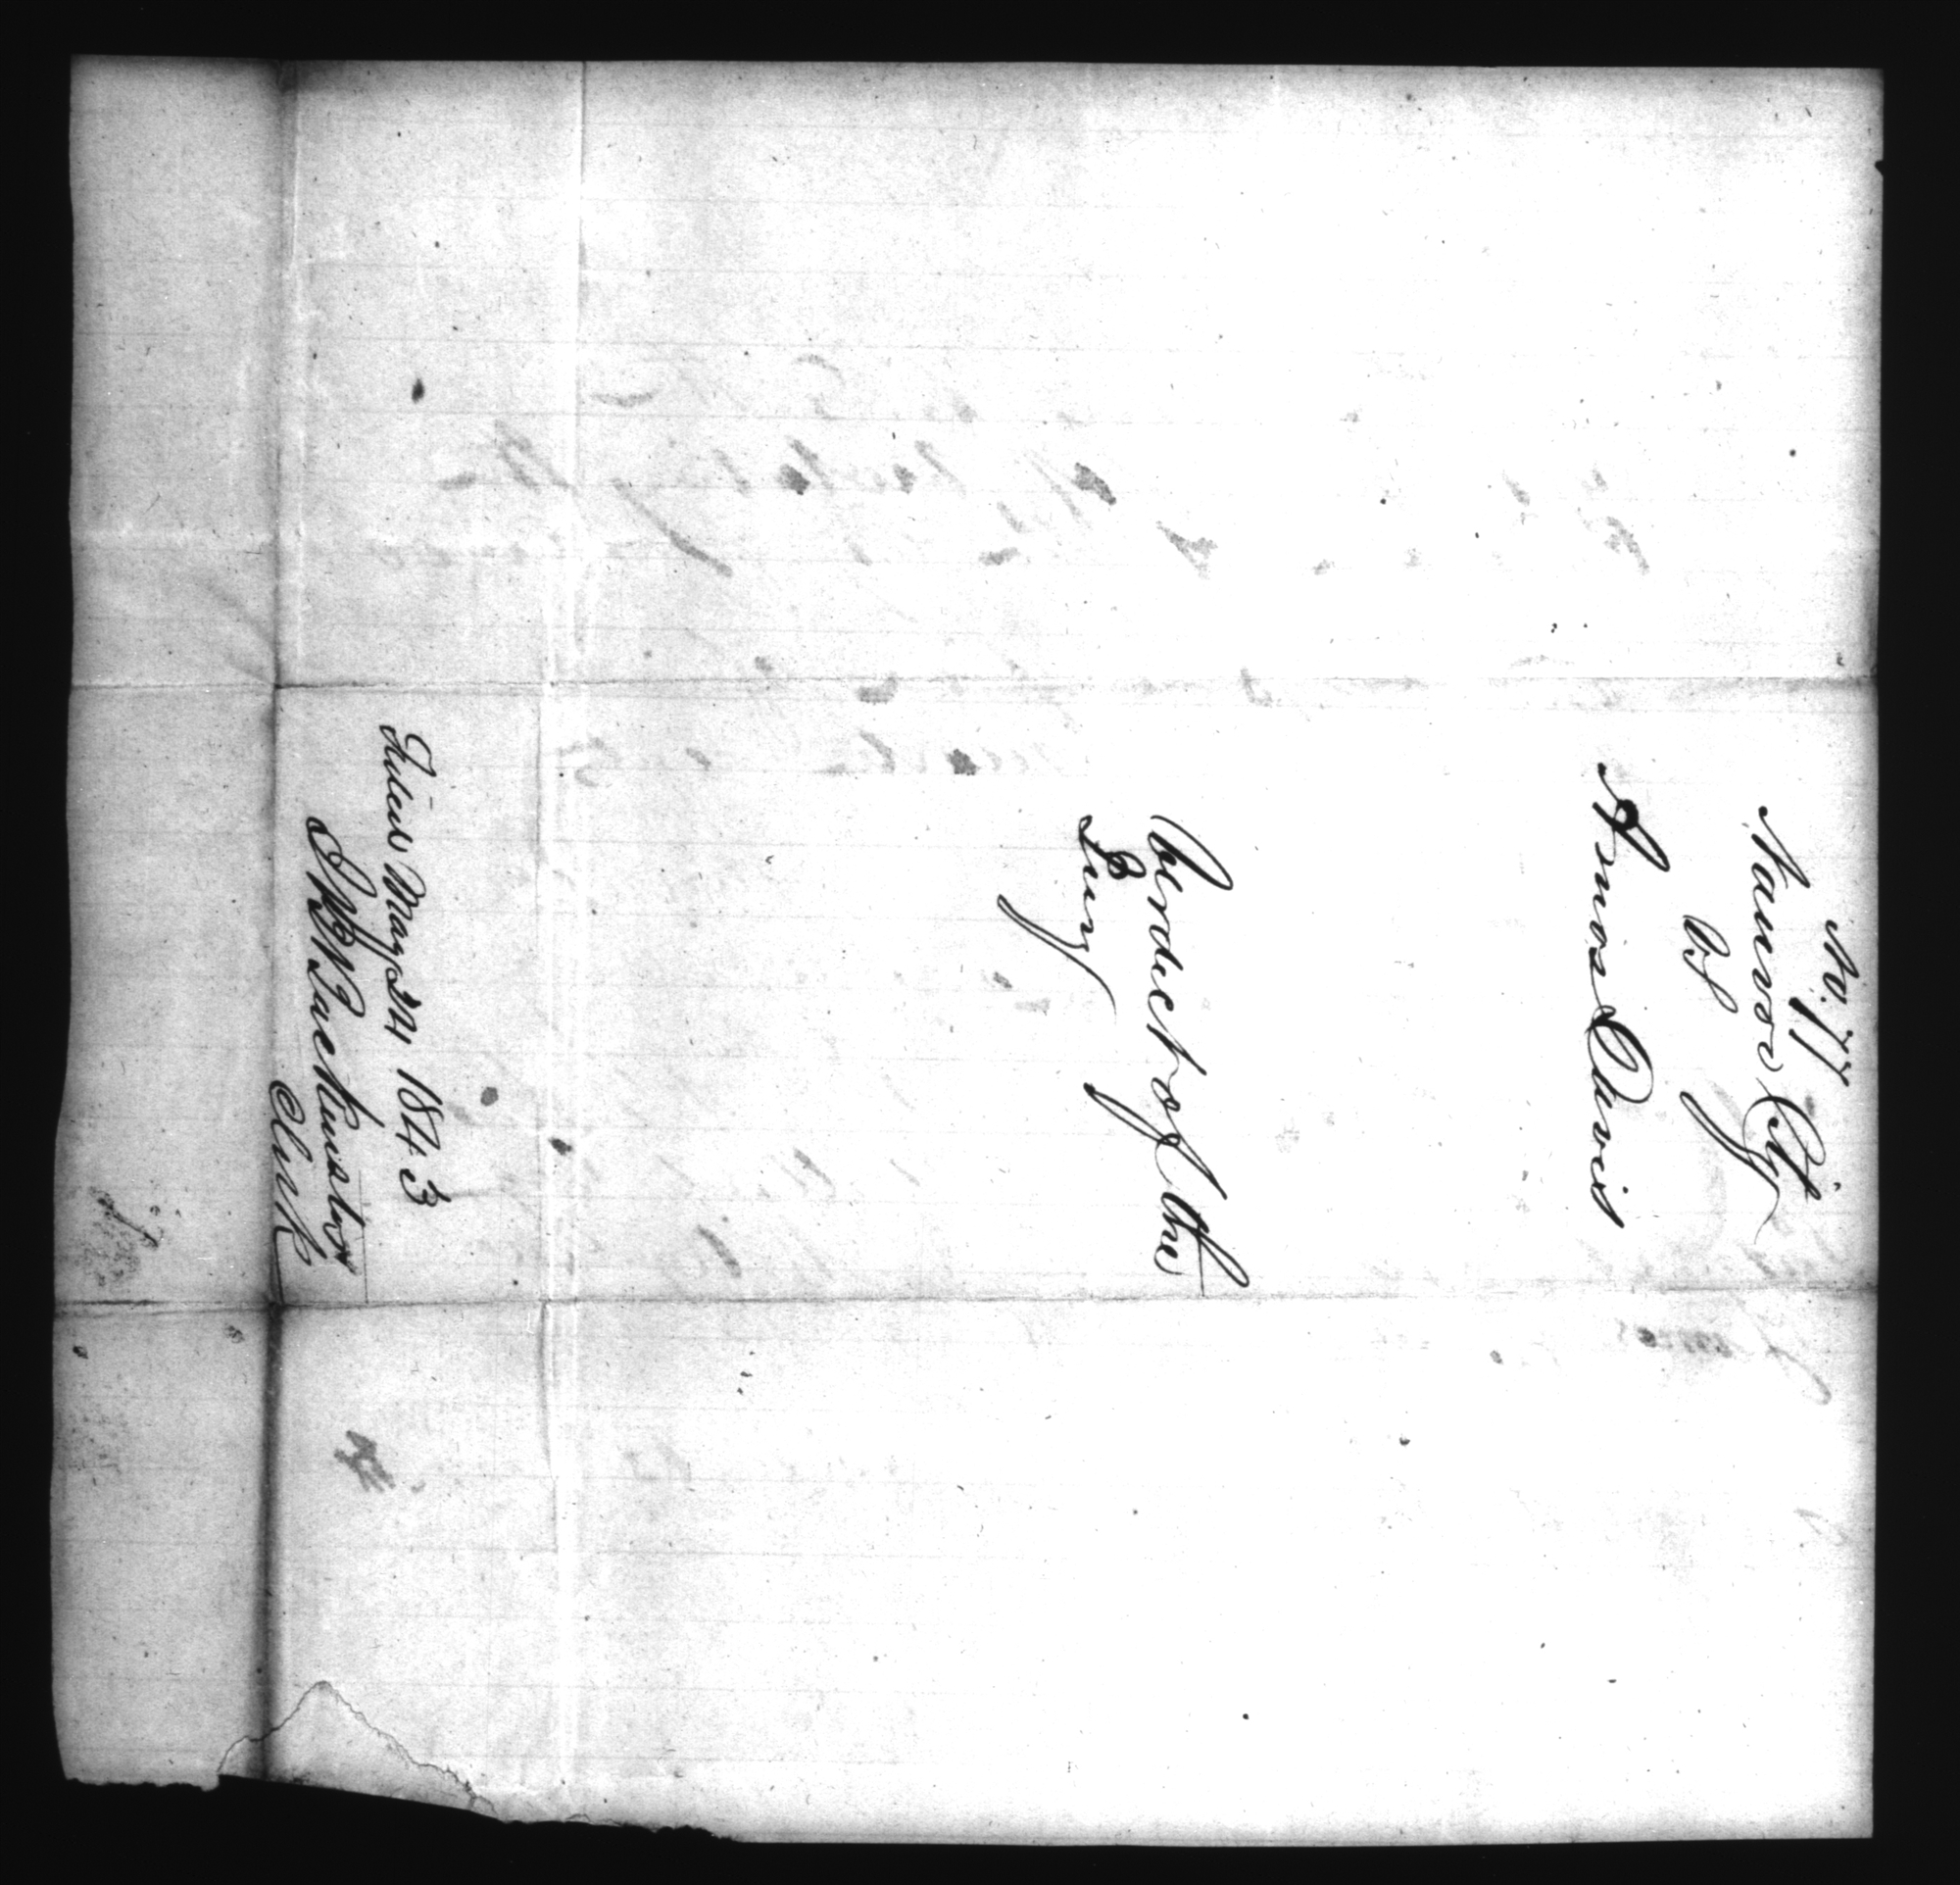 No. 77
Nauvoo City
vs
Amos Davis
Verdict of the
Jury
Filed May 24 1843
J B Backenstos
Clerk